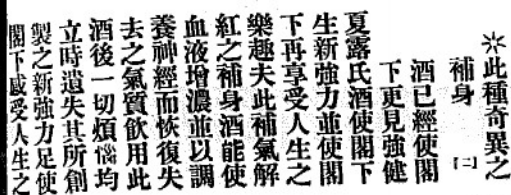 ※此種奇異之
補身 [二]
酒已經使閣
下更見強健
夏露氏酒使閣下
生新強力並使閣
下再享受人生之
樂趣夫此補氣解
紅之補身酒能使
血液增濃並以調
養神經而恢復失
去之氣質飲用此
酒後一切煩惱均
立時遺失其所創
製之新強力足使
閣下感受人生之